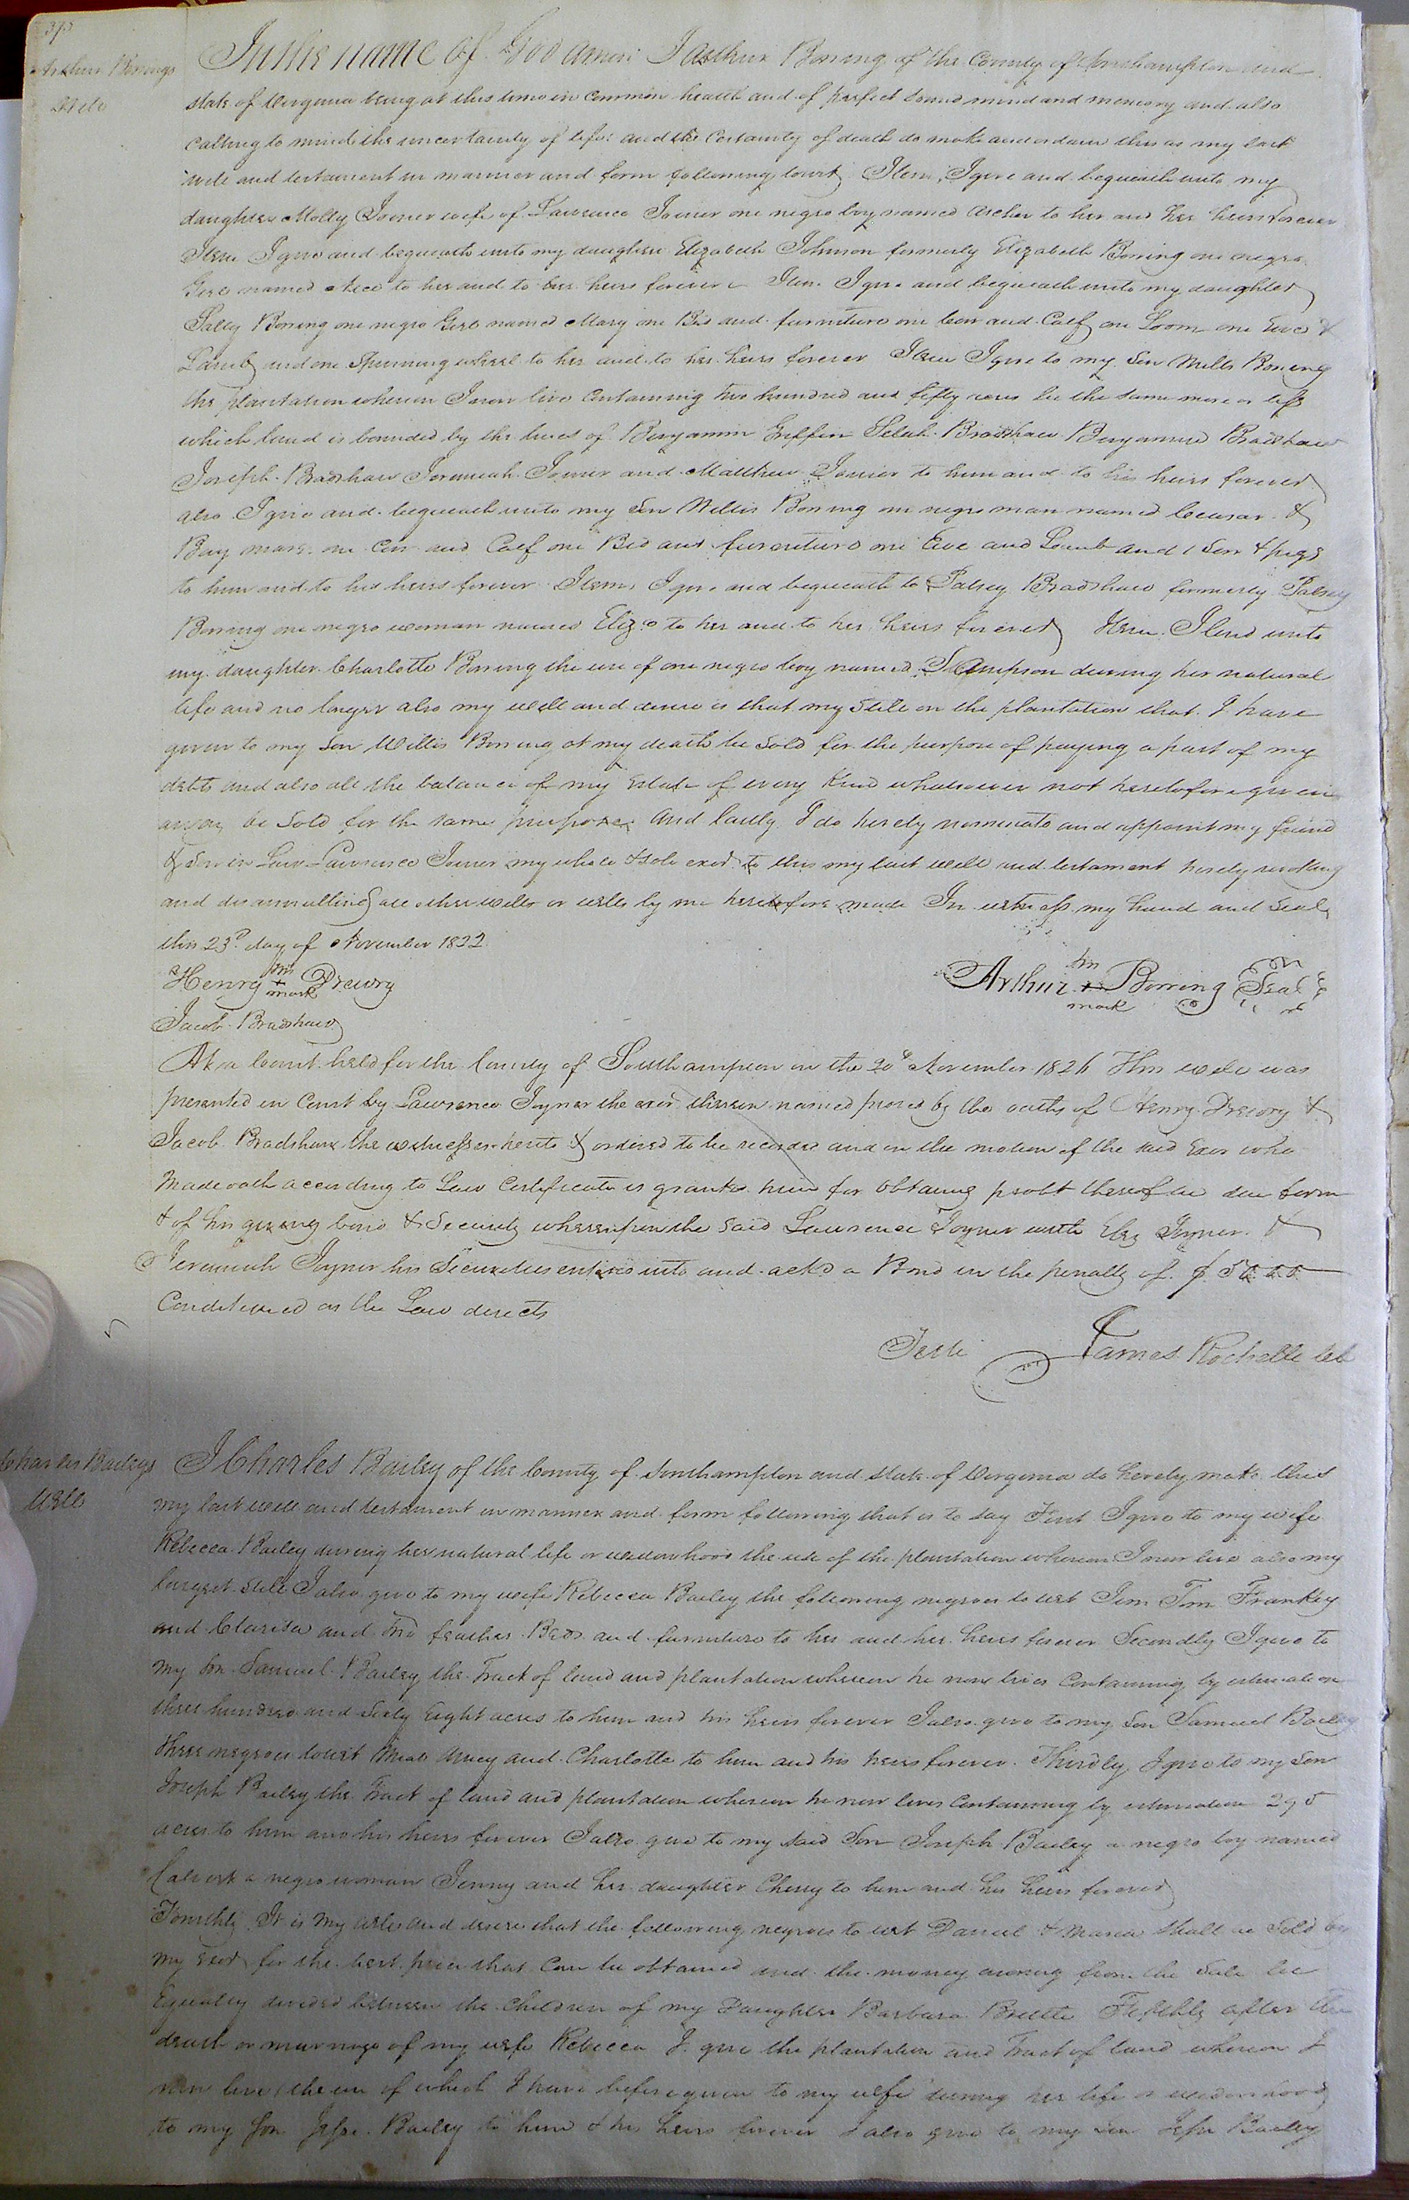 Arthur Borings
Will
In the name of God amen I Arthur Boring of the County of Southampton and
state of Virginia being at this time in common health and of perfect sound mind and memory and also
calling to mind the uncertainty of life and the certainty of death do make and ordain this as my last
will and testament in manner and form following towit Item I give and bequeath unto my
daughter Molly Joiner wife of Lawrence Joiner one negro boy named Archer to her and her heirs forever
Item I give and bequeath unto my daughter Elizabeth Johnson formerly Elizabeth Boring one negro
Girl named to her and to her heirs forever Item I give and bequeath unto my daughter
Salley Boring one negro Girl named Mary one Bed and furniture one Cow and Calf one Loom one Ewe &
Lamb and one Spinning wheel to her and to her heirs forever Item I give to my Son Willis Boring
the plantation whereon I now live Containing two hundred and fifty acres be the same more or less
which land is bounded by the lines of Benjamin Griffin Selah Bradshaw Benjamin Bradshaw
Joseph Bradshaw Jeremiah Joiner and Matthew Joiner to him and to his heirs forever
also I give and bequeath unto my Son Willis Boring one negro man named Ceasar &
Bay mare one Cow and Calf one Bed and furniture one Ewe and Lamb and 1 Sow & pigs
to him and to his heirs forever Item I give and bequeath to Patsey Bradshaw formerly Patsey
Boring one negro woman named Eliza to her and to her heirs forever Item I lend unto
my daughter Charlotte Boring the use of one negro boy named Sampson during her natural
life and no longer also my will and desire is that my Still on the plantation that I have
given to my Son Willis Boring at my death be Sold for the purpose of paying a part of my
debts and also all the balance of my Estate of every kind whatsoever not heretofore given
away be Sold for the same purpose And lastly I do hereby nominate and appoint my friend
& Son in Law Lawrence Joiner my whole & sole exor to this my last will and testament hereby revoking
and disannulling all other wills or wills by me heretofore made In witness my hand and Seal
this 23d day of November 1822
Henry his + mark Drewry
Arthur his + mark Boring Seal
Jacob Bradshaw
At a Court held for the County of Southampton on the 20th November 1826 This will was
presented in Court by Lawrence Joyner the exor therein named proved by the oaths of Henry Drewry &
Jacob Bradshaw the witnesses hereto & ordered to be recorded and on the motion of the said Exor who
made oath according to Law Certificate is granted him for obtaining probt thereof in due form
& of his giving bond & Security whereupon the said Lawrence Joyner with Joyner &
Jeremiah Joyner his Securities entered into and ackd a Bond in the penalty of $
Conditioned as the Law directs
Teste James Rochelle
Charles Baileys
Will
I Charles Bailey of the County of Southampton and State of Virginia do hereby make this
my last will and testament in manner and form following that is to say First I give to my wife
Rebecca Bailey during her natural life or widowhood the use of the plantation whereon I now live also my
largest Still I also give to my wife Rebecca Bailey the following negroes to wit Jim Tom Frankey
and Clarisa and two feather Beds and furniture to her and her heirs forever Secondly I give to
my Son Samuel Bailey the Tract of land and plantation whereon he now lives Containing by estimation
three hundred and Sixty Eight acres to him and his heirs forever I also give to my Son Samuel Bailey
three negroes towit Amey and Charlotte to him and his heirs forever. Thirdly I give to my Son
Joseph Bailey the Tract of land and plantation whereon he now lives Containing by estimation
acres to him and his heirs forever I also give to my said Son Joseph Bailey a negro boy named
a negro woman Jenny and her daughter Cherry to him and his heirs forever
Fourthly It is my will and desire that the following negroes to wit Daniel & Maria shall be Sold by
my Exor for the best price that Can be obtained and the money arising from the Sale be
Equally divided between the Children of my Daughter Barbara Fifthly after the
death or marriage of my wife Rebecca I give the plantation and Tract of land whereon I
now live (the use of which I have before given to my wife during her life or widowhood)
to my Son Jesse Bailey to him & his heirs forever I also give to my Son Jesse Bailey